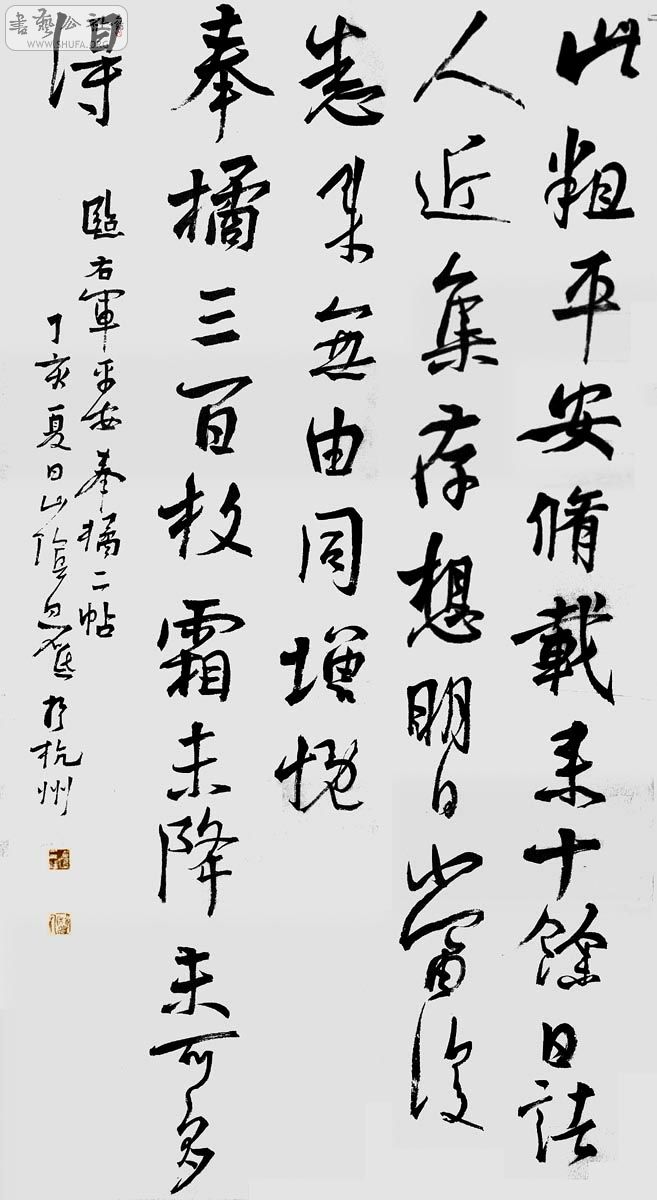 此粗平安脩載来十餘日諸
人近集存想明日當復
悉来無由同增慨
奉橘三百枚霜未降未可多
得
臨右軍平安奉橘二帖
丁亥夏日山陰於杭州
書藝公社
WWW.SHUFA.ORG